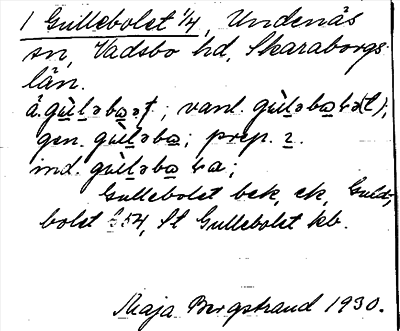 1 Gullebolet 1/4, Undenäs
sn, Vadsbo hd, Skaraborgs
län.
å. gùl̲əba̲əṭ; vanl. gùl̲əba̲
gen. gùl̲əba̲; prep. ɪ.
ind. gùl̲əba̲
Gullebolet bek, ek,
bolet 54, St Gullebolet kb.
Maja Bergstrand 1930.